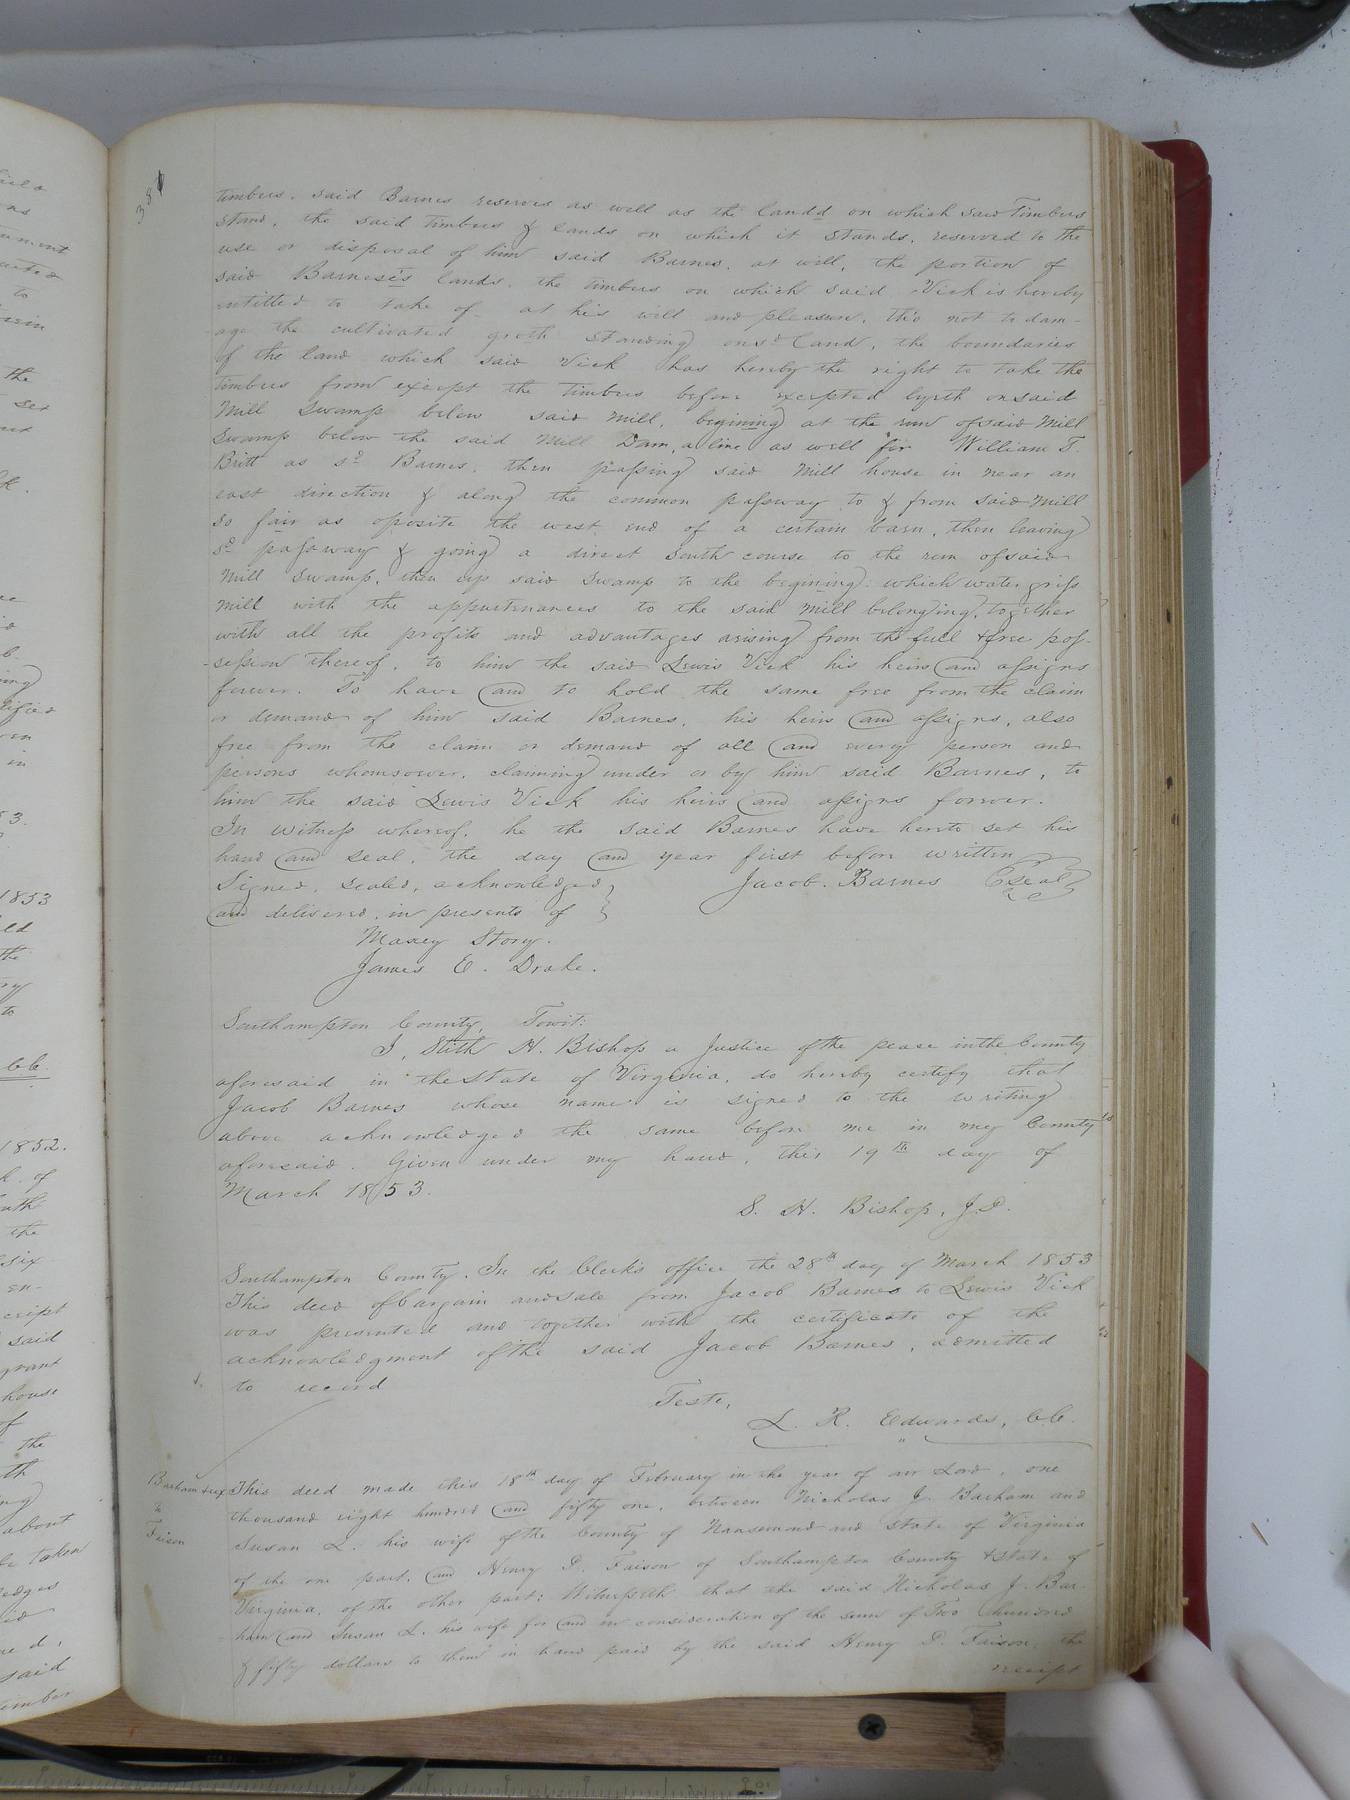 381
timbers, said Barnes reserves as well as the landd on which said Timbers
stand, the said timbers & lands on which it stands, reserved to the
use or disposal of him said Barnes, at will, the portion of
said Barnese's lands, the timbers on which said Vick is hereby
intitled to take of at his will and pleasure, tho not to dam-
-age the cultivated groth standing on sd land, the boundaries
of the land which said Vick has hereby the right to take the
timbers from except the timbers before excepted byrth on said
Mill Swamp below said Mill, begining at the run of said Mill
Swamp below the said Mill Dam, a line as well for William T.
Britt as sd Barnes, then passing said Mill house in near an
east direction & along the common passway to & from said Mill
so fair as oposite the west end of a certain barn, then leaving
sd passway & going a direct South course to the run of said
Mill Swamp, then up said Swamp to the begining: which water griss
mill with the appurtenances to the said mill belonging, together
with all the profits and advantages arising from the full & free pos-
-session thereof, to him the said Lewis Vick his heirs and assigns
forever. To have and to hold the same free from the claim
or demand of him said Barnes, his heirs and assigns, also
free from the claim or demand of all and every person and
persons whomsoever, claiming under or by him said Barnes, to
him the said Lewis Vick his heirs and assigns forever.
In witness whereof, he the said Barnes have hereto set his
hand and seal, the day and year first before written
Signed, sealed, acknowledged Jacob. Barnes Seal
and delivered, in presents of
Maxey Story.
James E. Drake.
Southampton County, Towit:
I, Stith H. Bishop a Justice of the pease in the County
aforesaid in the State of Virginia, do hereby certify that
Jacob Barnes whose name is signed to the writing
above acknowledged the same before me in my County
aforesaid. Given under my hand, this 19th day of
March 1853.
S. H. Bishop, J.P.
Southampton County. In the Clerk's office the 28th day of March 1853
This deed of bargain and sale from Jacob Barnes to Lewis Vick
was presented and together with the certificate of the
acknowledgment of the said Jacob Barnes, admitted
to record
Teste,
L. R. Edwards, C.C.
Barham & ux
to
Faison
This deed made this 18th day of February in the year of our Lord, one
thousand eight hundred and fifty one, between Nicholas J. Barham and
Susan L. his wife of the County of Nansemond and State of Virginia
of the one part, and Henry D. Faison of Southampton County & State of
Virginia, of the other part: Witnesseth that the said Nicholas J. Bar-
-ham and Susan L. his wife for and in consideration of the sum of Two hundred
& fifty dollars to them in hand paid by the said Henry D. Faison, the
receipt